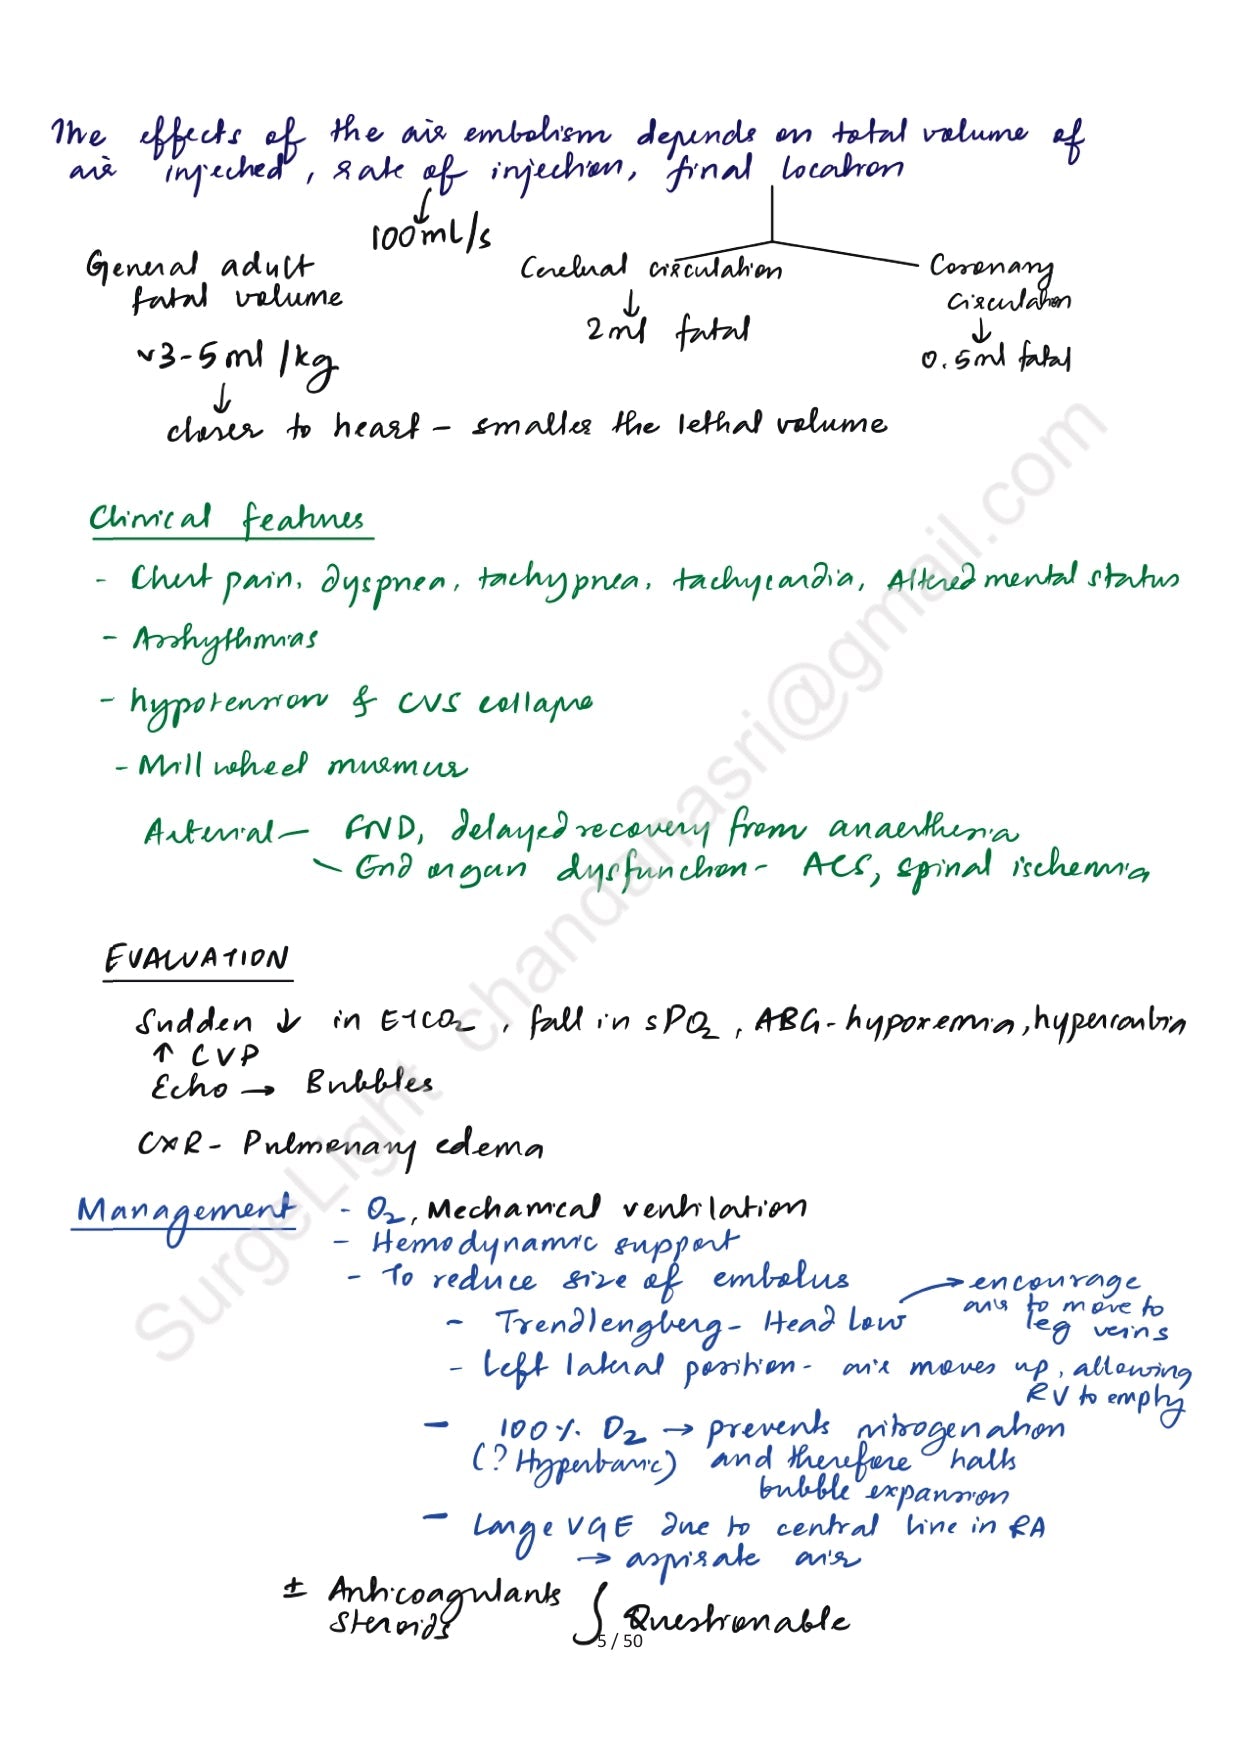 The effects of the air embolism depends on total volume of
air injected, rate of injection, final location
↓
100mL/s
General adult
fatal volume
~3-5ml/kg
↓
closer to heart - smaller the lethal volume
Cerebral circulation
↓
2ml fatal
Coronary
circulation
↓
0.5ml fatal
Clinical features
- Chest pain, dyspnea, tachypnea, tachycardia, Altered mental status
- Arrhythmias
- hypotension & CVS collapse
- Mill wheel murmur
Arterial - FND, delayed recovery from anaesthesia
- End organ dysfunction - ACS, spinal ischemia
EVALUATION
Sudden ↓ in EtCO2, fall in sPO2, ABG - hypoxemia, hypercarbia
↑ CVP
Echo → Bubbles
CXR - Pulmonary edema
Management - O2, Mechanical ventilation
- Hemodynamic support
- To reduce size of embolus
- Trendlengberg - Head Low → encourage
air to move to
leg veins
- Left lateral position - air moves up, allowing
RV to empty
- 100% O2 → prevents nitrogenation
(? Hyperbaric) and therefore halts
bubble expansion
- Large VGE due to central line in RA
→ aspirate air
± Anticoagulants
Steroids
Questionable
5 / 50
SurgeLight chandanasri@gmail.com